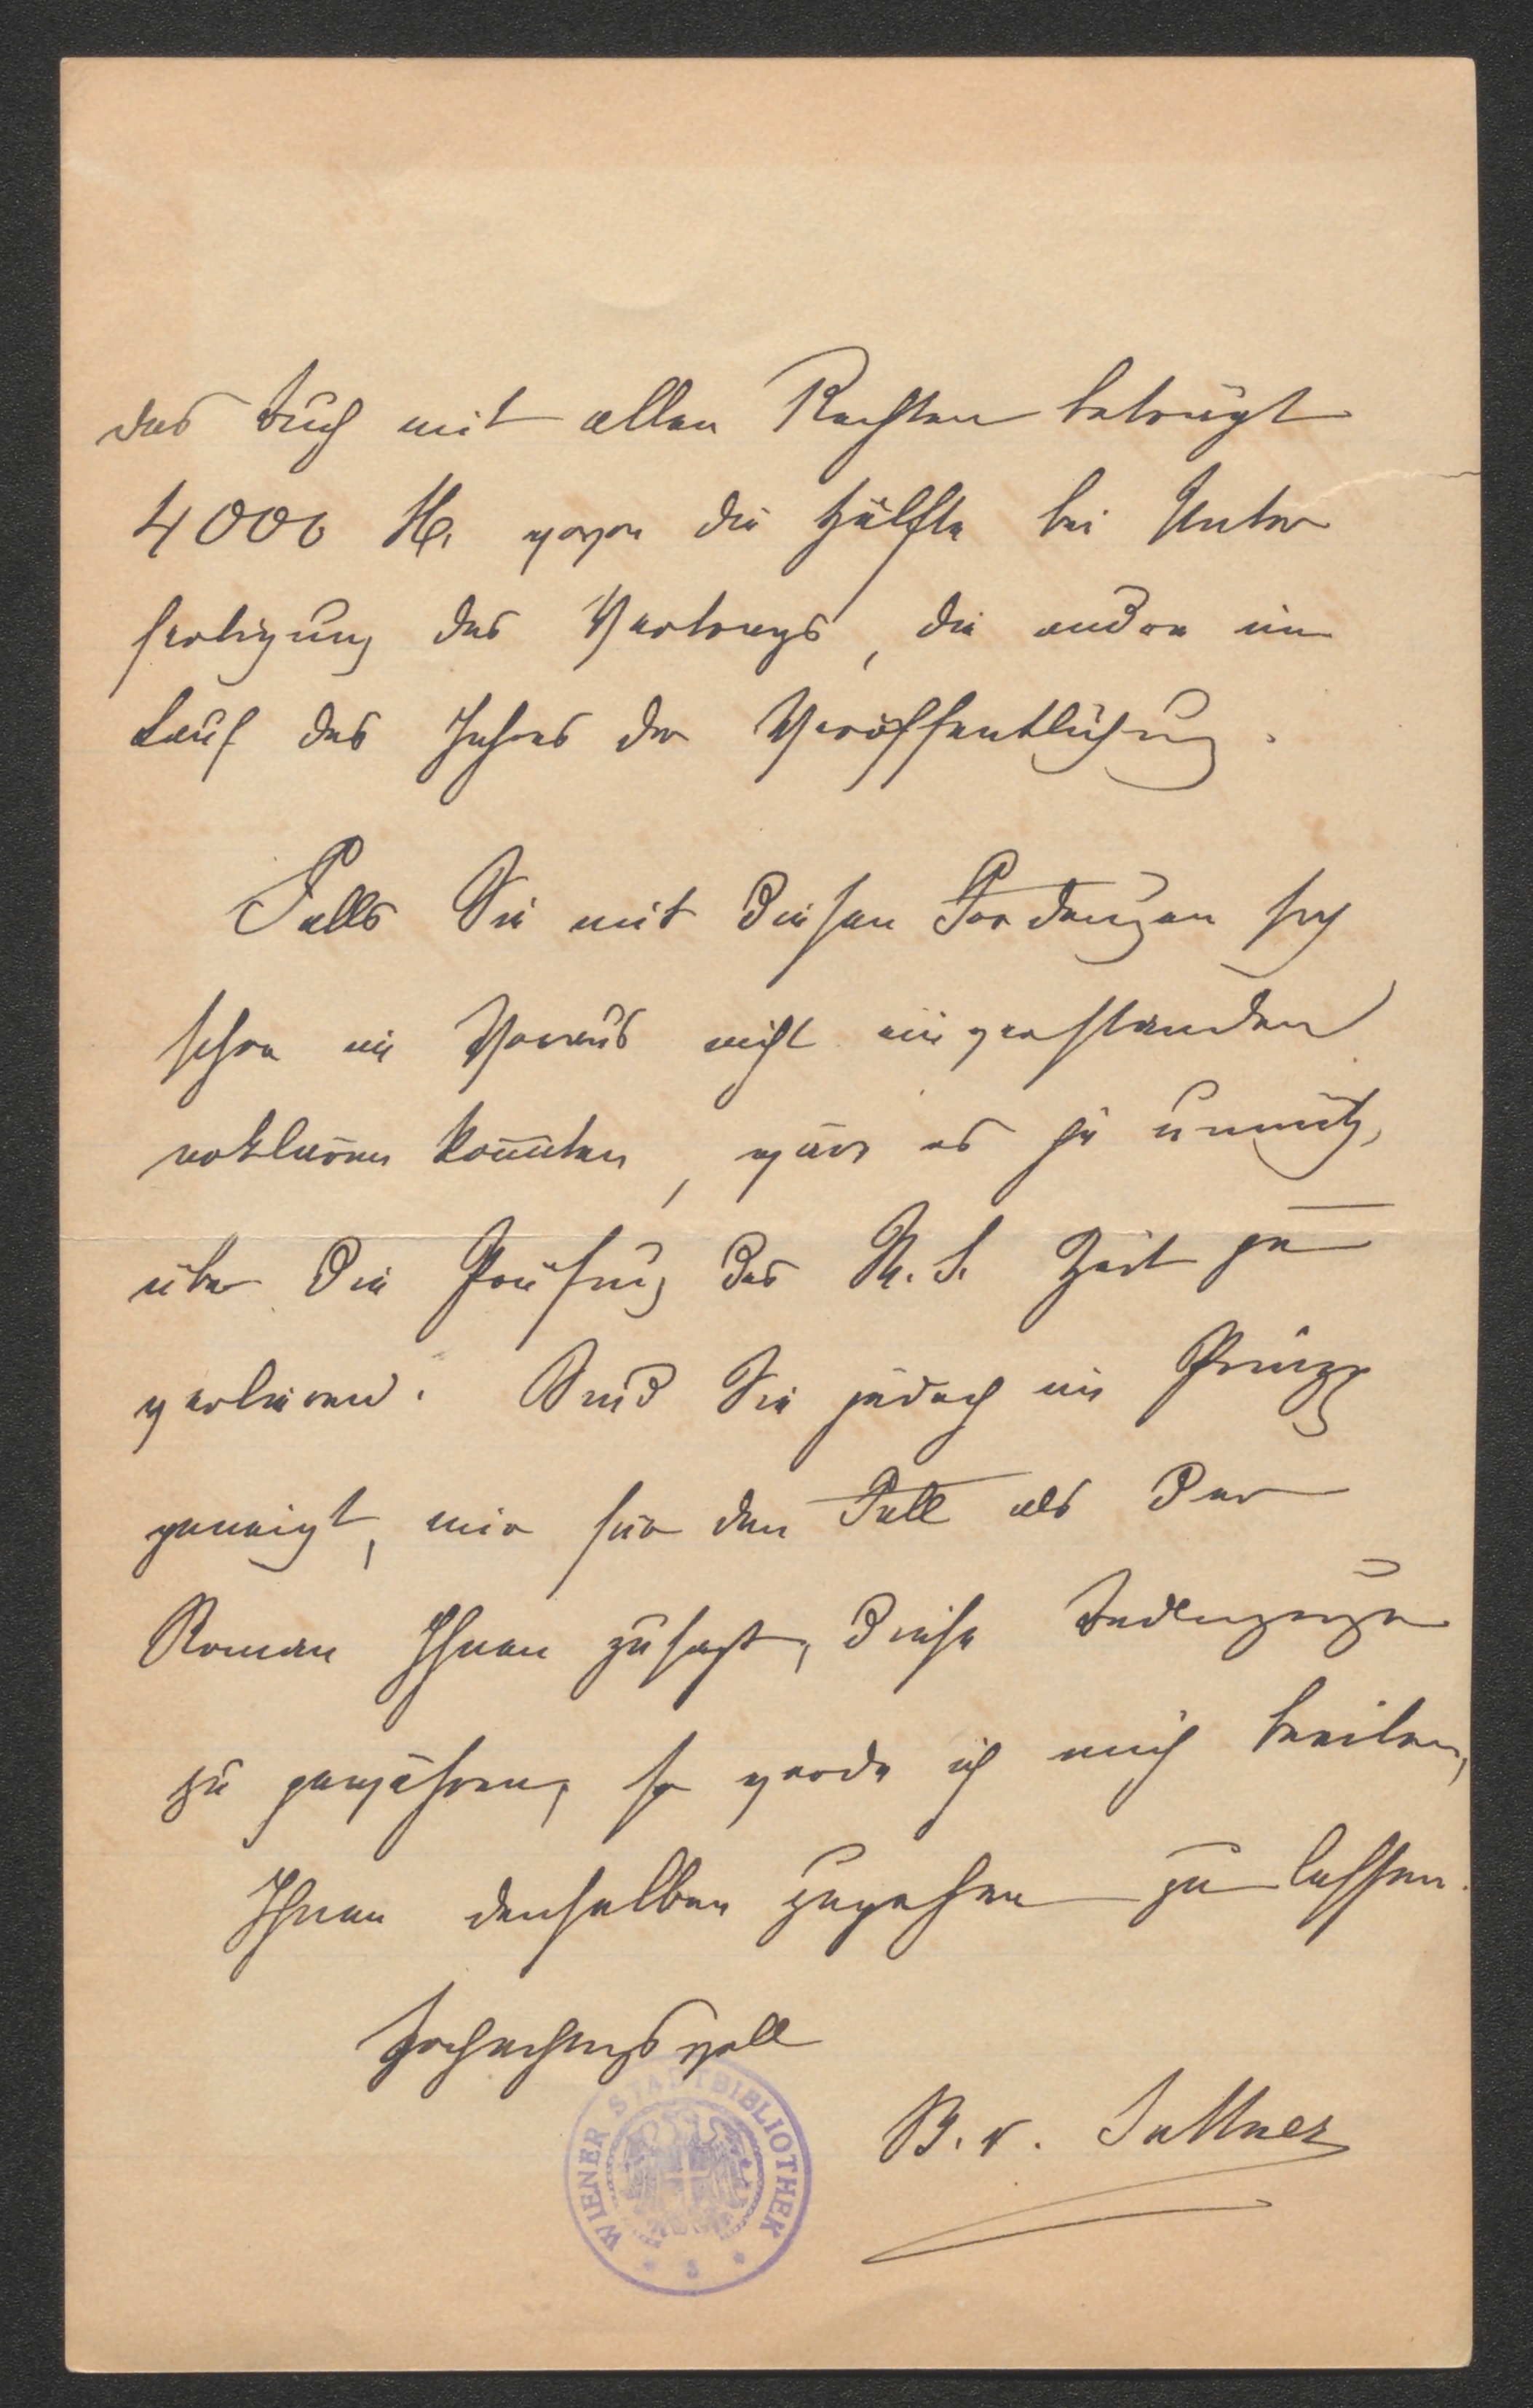 das Buch mit allen Rechten beträgt
4000 M. wovon die Hälfte bei Unter
fertigung des Vertrags, die andre im
Lauf des Jahres der Veröffentlichung.
Falls Sie mit diesen Forderungen sich
schon im Voraus nicht einverstanden
erklären könnten, wäre es ja unnütz,
über die Prüfung des M.S. Zeit zu
verlieren. Sind Sie jedoch im Prinzip
geneigt, mir für den Fall als der
Roman Ihnen zusagt, diese Bedingungen
zu gewähren, so werde ich mich beeilen,
Ihnen denselben zugehen zu lassen.
Hochachtungsvoll
B. v. Suttner
WIENER STADTBIBLIOTHEK